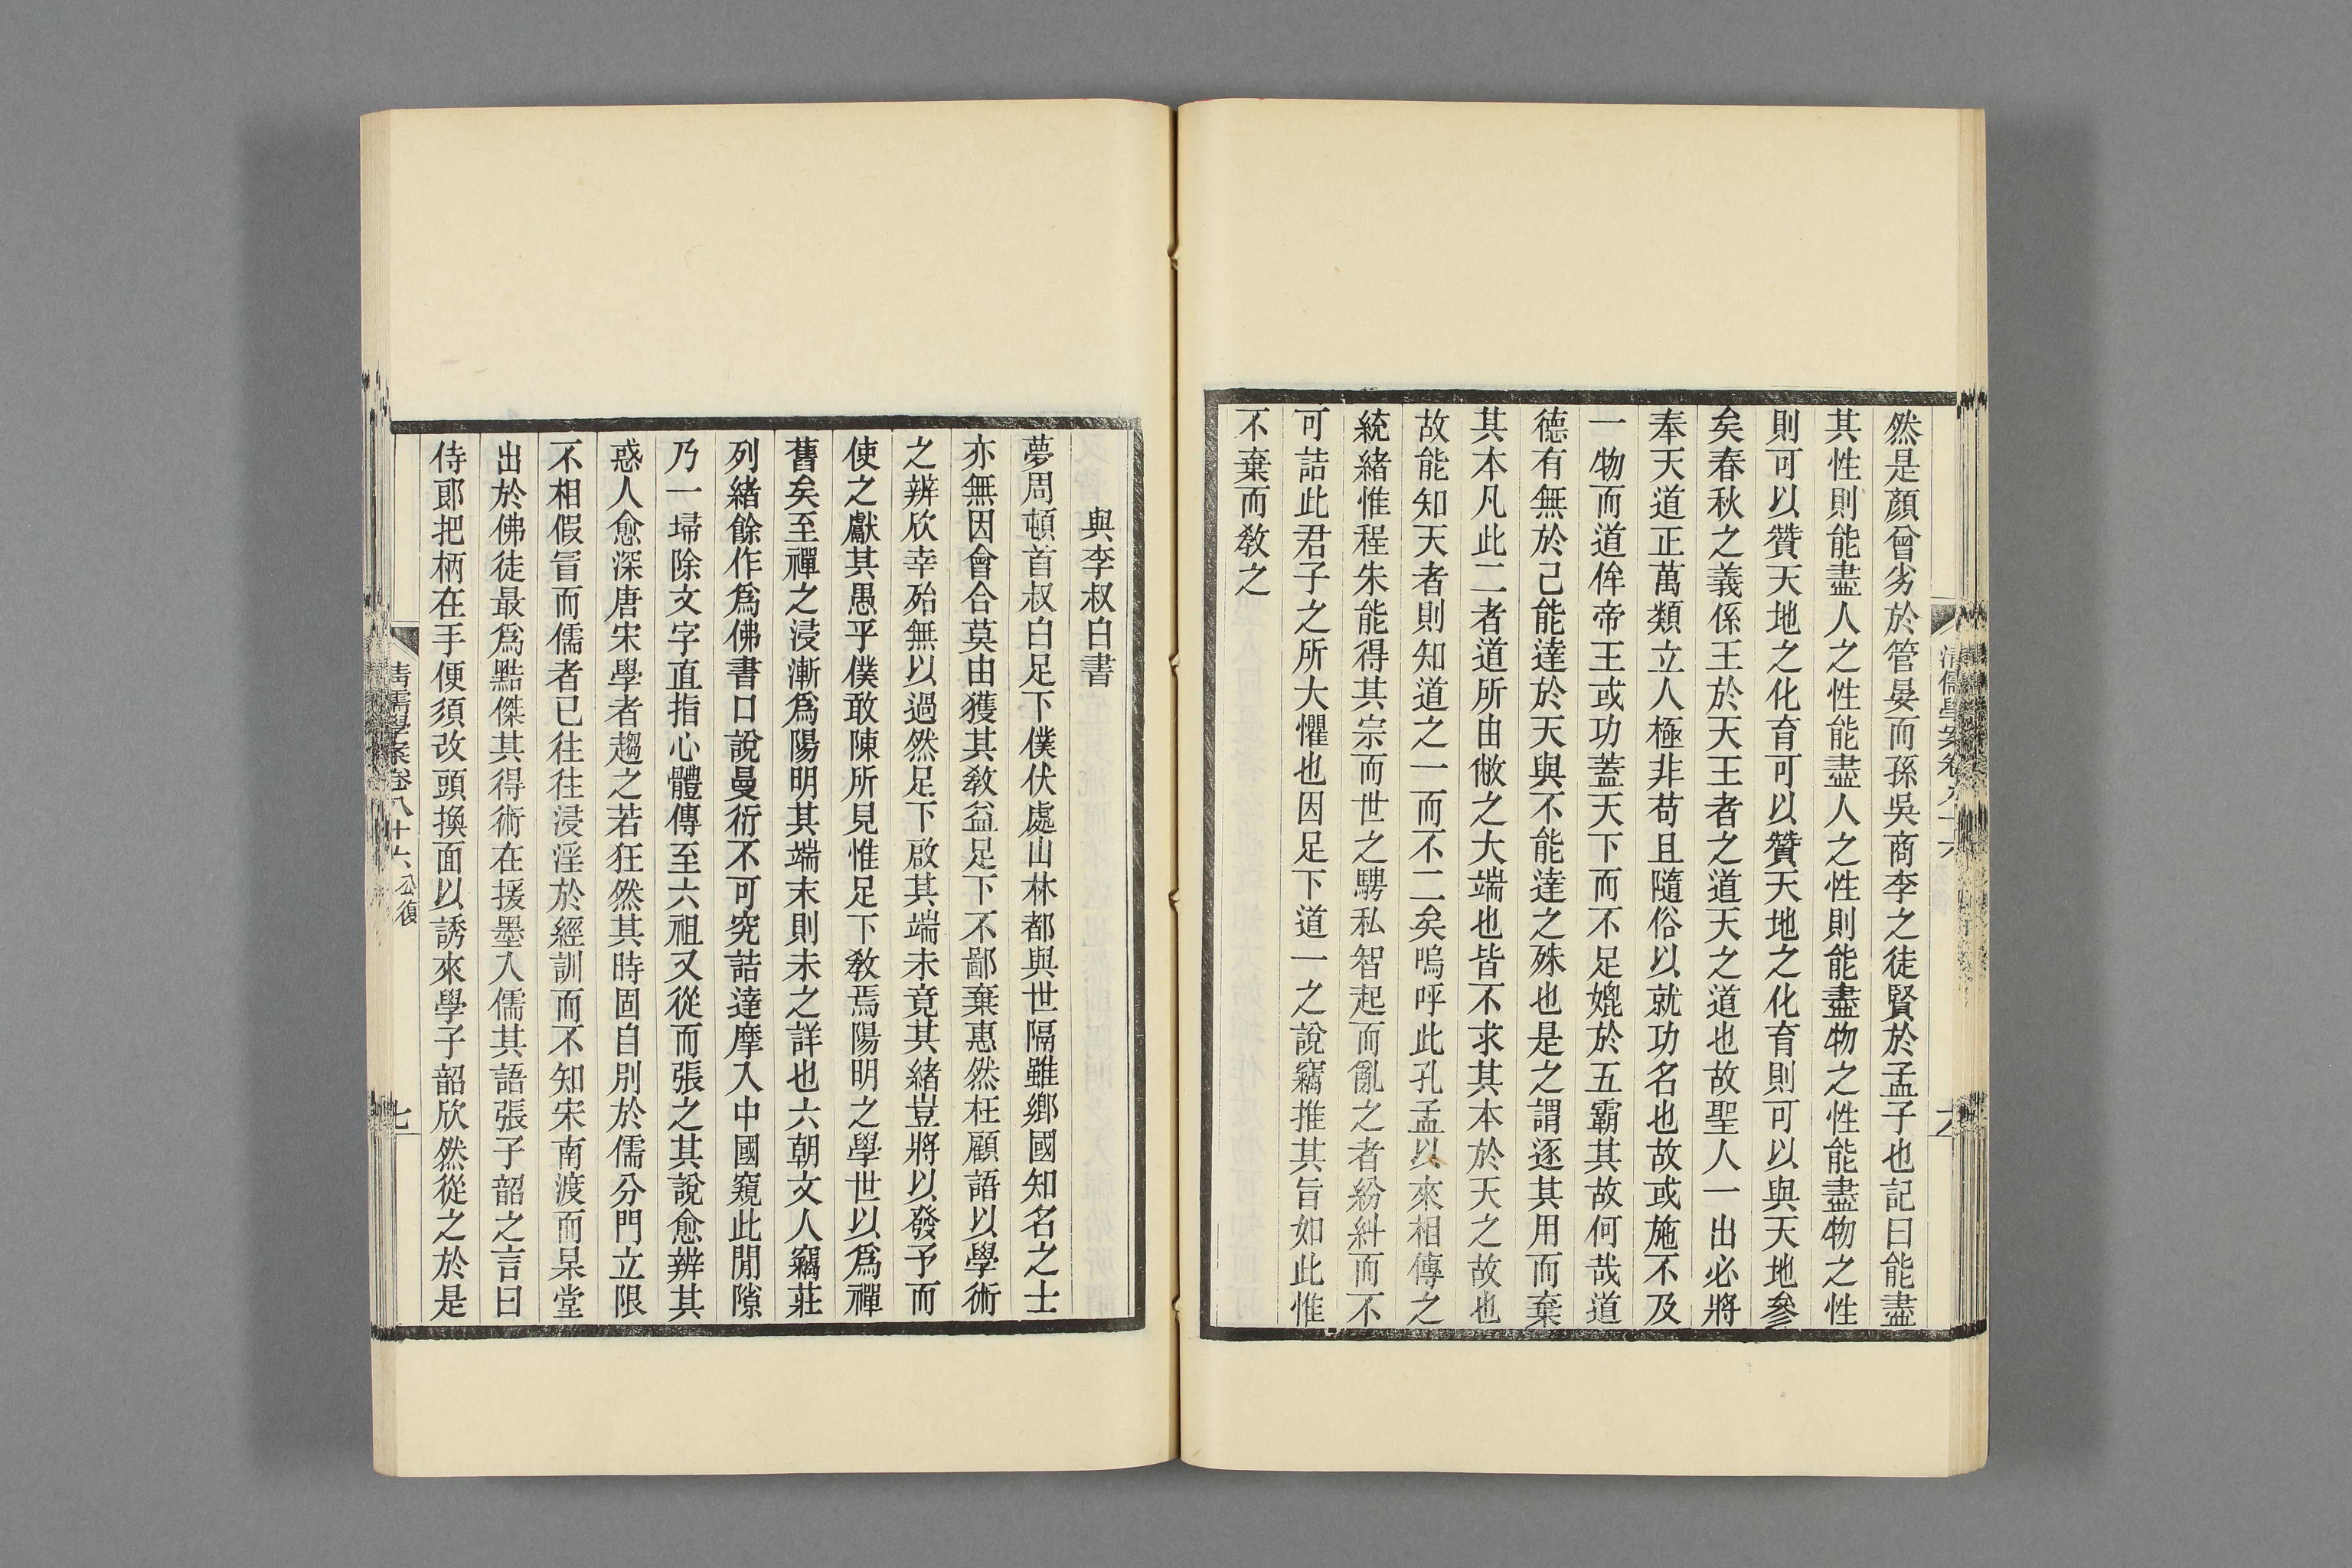 然是顏曾劣於管晏而孫吳商李之徒賢於孟子也記曰能盡
其性則能盡人之性能盡人之性則能盡物之性能盡物之性
則可以贊天地之化育可以贊天地之化育則可以與天地參
矣春秋之義係王於天王者之道天之道也故聖人一出必將
奉天道正萬類立人極非苟且隨俗以就功名也故或施不及
一物而道侔帝王或功蓋天下而不足媲於五霸其故何哉道
德有無於己能達於天與不能達之殊也是之謂逐其用而棄
其本凡此二者道所由敝之大端也皆不求其本於天之故也
故能知天者則知道之一而不二矣嗚呼此孔孟以來相傳之
統緒惟程朱能得其宗而世之騁私智起而亂之者紛糾而不
可詰此君子之所大懼也因足下道一之說竊推其旨如此惟
不棄而敎之
與李叔白書
夢周頓首叔白足下僕伏處山林都與世隔雖鄉國知名之士
亦無因會合莫由獲其敎益足下不鄙棄惠然枉顧語以學術
之辨欣幸殆無以過然足下啟其端未竟其緒豈將以發予而
使之獻其愚乎僕敢陳所見惟足下敎焉陽明之學世以爲禪
舊矣至禪之浸漸爲陽明其端末則未之詳也六朝文人竊莊
列緒餘作爲佛書口說曼衍不可究詰達摩入中國窺此閒隙
乃一埽除文字直指心體傳至六祖又從而張之其說愈辨其
惑人愈深唐宋學者趨之若狂然其時固自別於儒分門立限
不相假冒而儒者已往往浸淫於經訓而不知宋南渡而杲堂
出於佛徒最爲黠傑其得術在援墨入儒其語張子韶之言曰
侍郎把柄在手便須改頭換面以誘來學子韶欣然從之於是
清儒學案卷八十六 公復
七